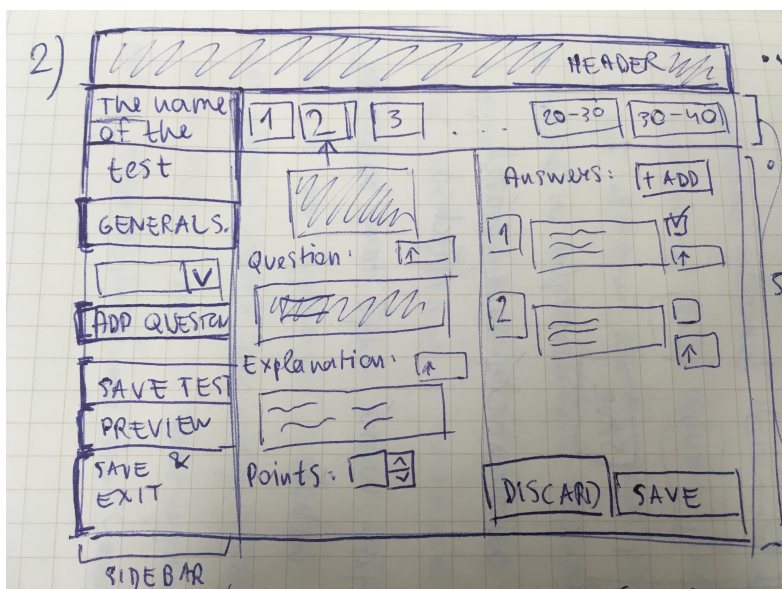 2)
HEADER
The name
of the
test
1 2 3 . . . 20-30 30-40
GENERALS.
V
ADD QUESTION
SAVE TEST
PREVIEW
SAVE &
EXIT
SIDEBAR
Question:
Explanation:
Points:
Answers: + ADD
1
2
DISCARD SAVE
S